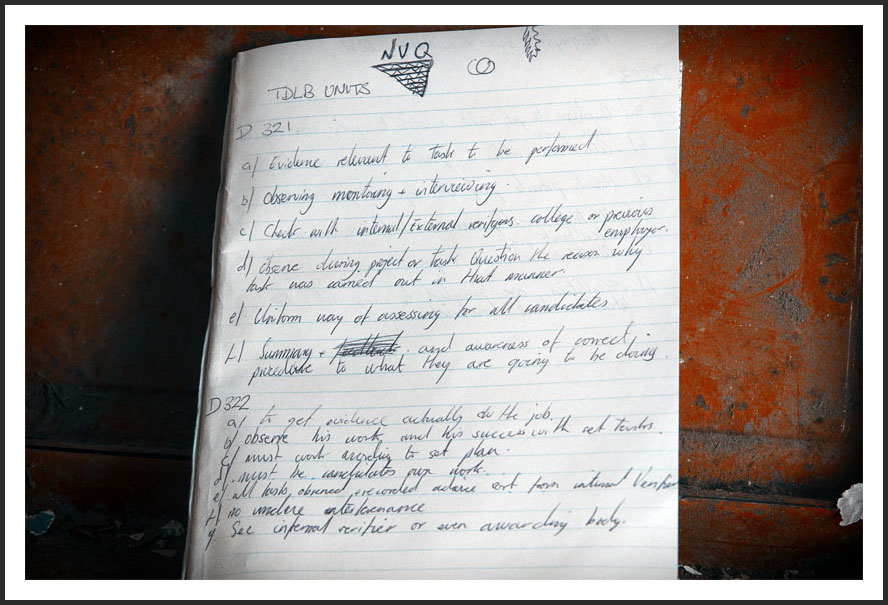 NVQ
TDLB UNITS
D 321
a) Evidence relevant to task to be performed
b) Observing monitoring + interviewing.
c) Check with internal/External verifyers college or previous
employer.
d) observe during project or task Question the reason why
task was carried out in that manner.
e) Uniform way of assessing for all candidates
f) Summary + and awareness of correct
procedure to what they are going to be doing.
D322
a) to get evidence actually do the job.
b) observe his work, and his success with set tasks.
c) must work according to set plan.
d) must be candidates own work.
e) all tasks, observed, recorded advice from internal Verifier
f) no undue
g) See internal verifier or even awarding body.